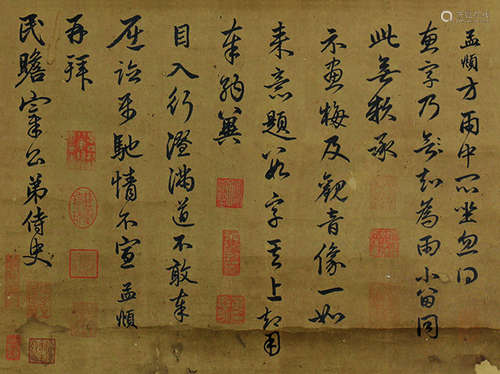 孟頫方雨中兀坐忽得
惠字乃知為雨小留同
此無聊承
示畫梅及觀音像一如
來意題八字其上却用
奉納冀
目入行潦滿道不敢奉
屈馳情不宣孟頫
再拜
民瞻宰公弟侍史